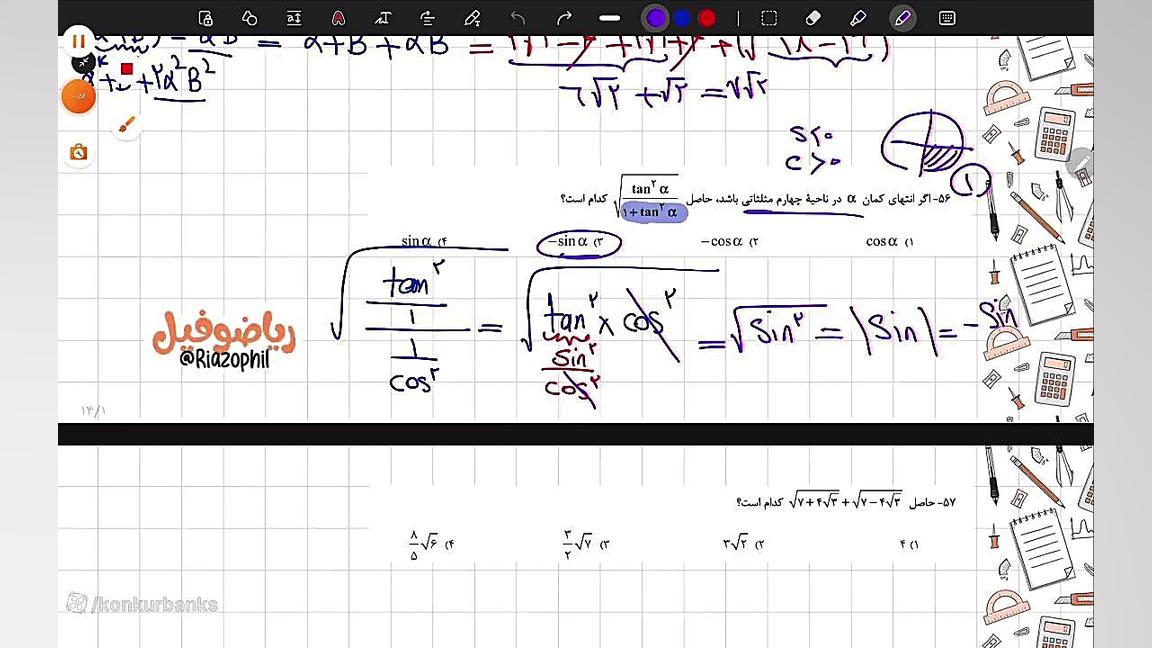 = α+B + αB =
α + + ۲α²B²
۶√۲ + √۲ = ۷√۲
S<۰
C>۰
۱
۵۶- اگر انتهای کمان α در ناحیهٔ چهارم مثلثاتی باشد، حاصل √(tan² α / ۱+tan² α) کدام است؟
۱) cosα ۲) −cosα ۳) −sinα ۴) sinα
√(tan² / ۱ / ۱ / cos²) = √(tan² × cos²) = √Sin² = |Sin| = −Sin
Sin² / cos²
ریاضوفیل
@Riazophil
۱۴/۱
۵۷- حاصل √(۷+۴√۳) + √(۷−۴√۳) کدام است؟
۱) ۴ ۲) ۳√۲ ۳) ۳/۲ √۷ ۴) ۸/۵ √۶
/konkurbanks